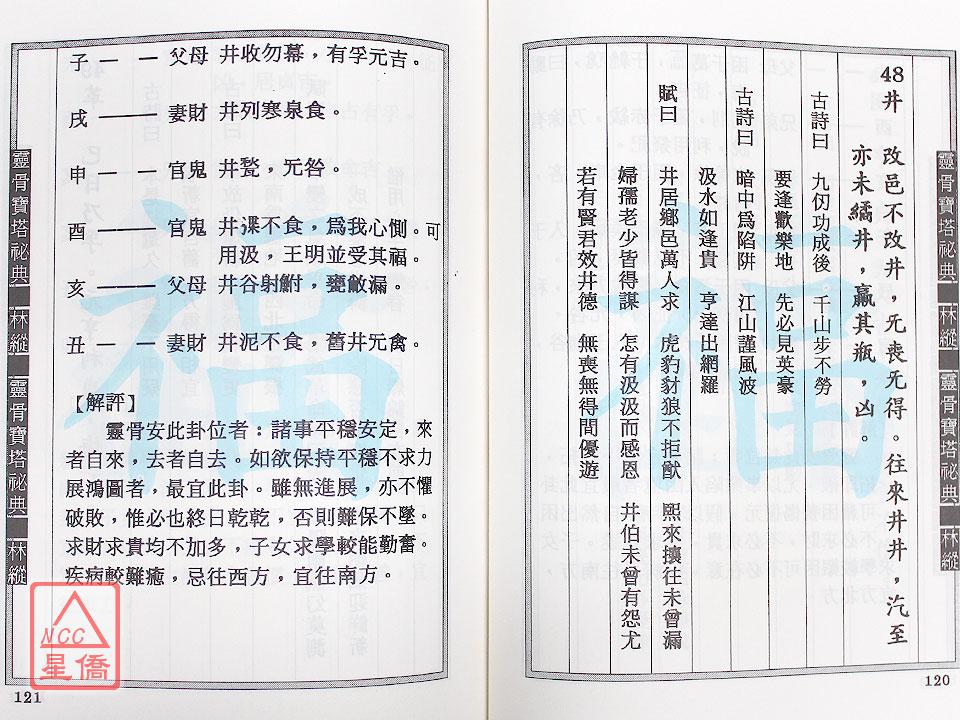 48井 改邑不改井，无喪无得。往來井井，汔至
亦未繘井，羸其瓶，凶。
古詩曰 九仞功成後 千山步不勞
要逢歡樂地 先必見英豪
古詩曰 暗中為陷阱 江山謹風波
汲水如逢貴 亨達出網羅
賦曰 井居鄉邑萬人求 虎豹豺狼不拒猷 熙來攘往未曾漏
婦孺老少皆得謀 怎有汲汲而感恩 井伯未曾有怨尤
若有賢君效井德 無喪無得間優遊
靈骨寶塔祕典 林縱
靈骨寶塔祕典 林縱
120
子 — — 父母 井收勿幕，有孚元吉。
戌 —— 妻財 井列寒泉食。
申 — — 官鬼 井甃，元咎。
酉 —— 官鬼 井渫不食，為我心惻。可
用汲，王明並受其福。
亥 —— 父母 井谷射鮒，甕敝漏。
丑 — — 妻財 井泥不食，舊井元禽。
【解評】
靈骨安此卦位者：諸事平穩安定，來
者自來，去者自去。如欲保持平穩不求力
展鴻圖者，最宜此卦。雖無進展，亦不懼
破敗，惟必也終日乾乾，否則難保不墜。
求財求貴均不加多，子女求學較能勤奮。
疾病較難癒，忌往西方，宜往南方。
靈骨寶塔祕典 林縱
靈骨寶塔祕典 林縱
121
福
福
NCC
星僑